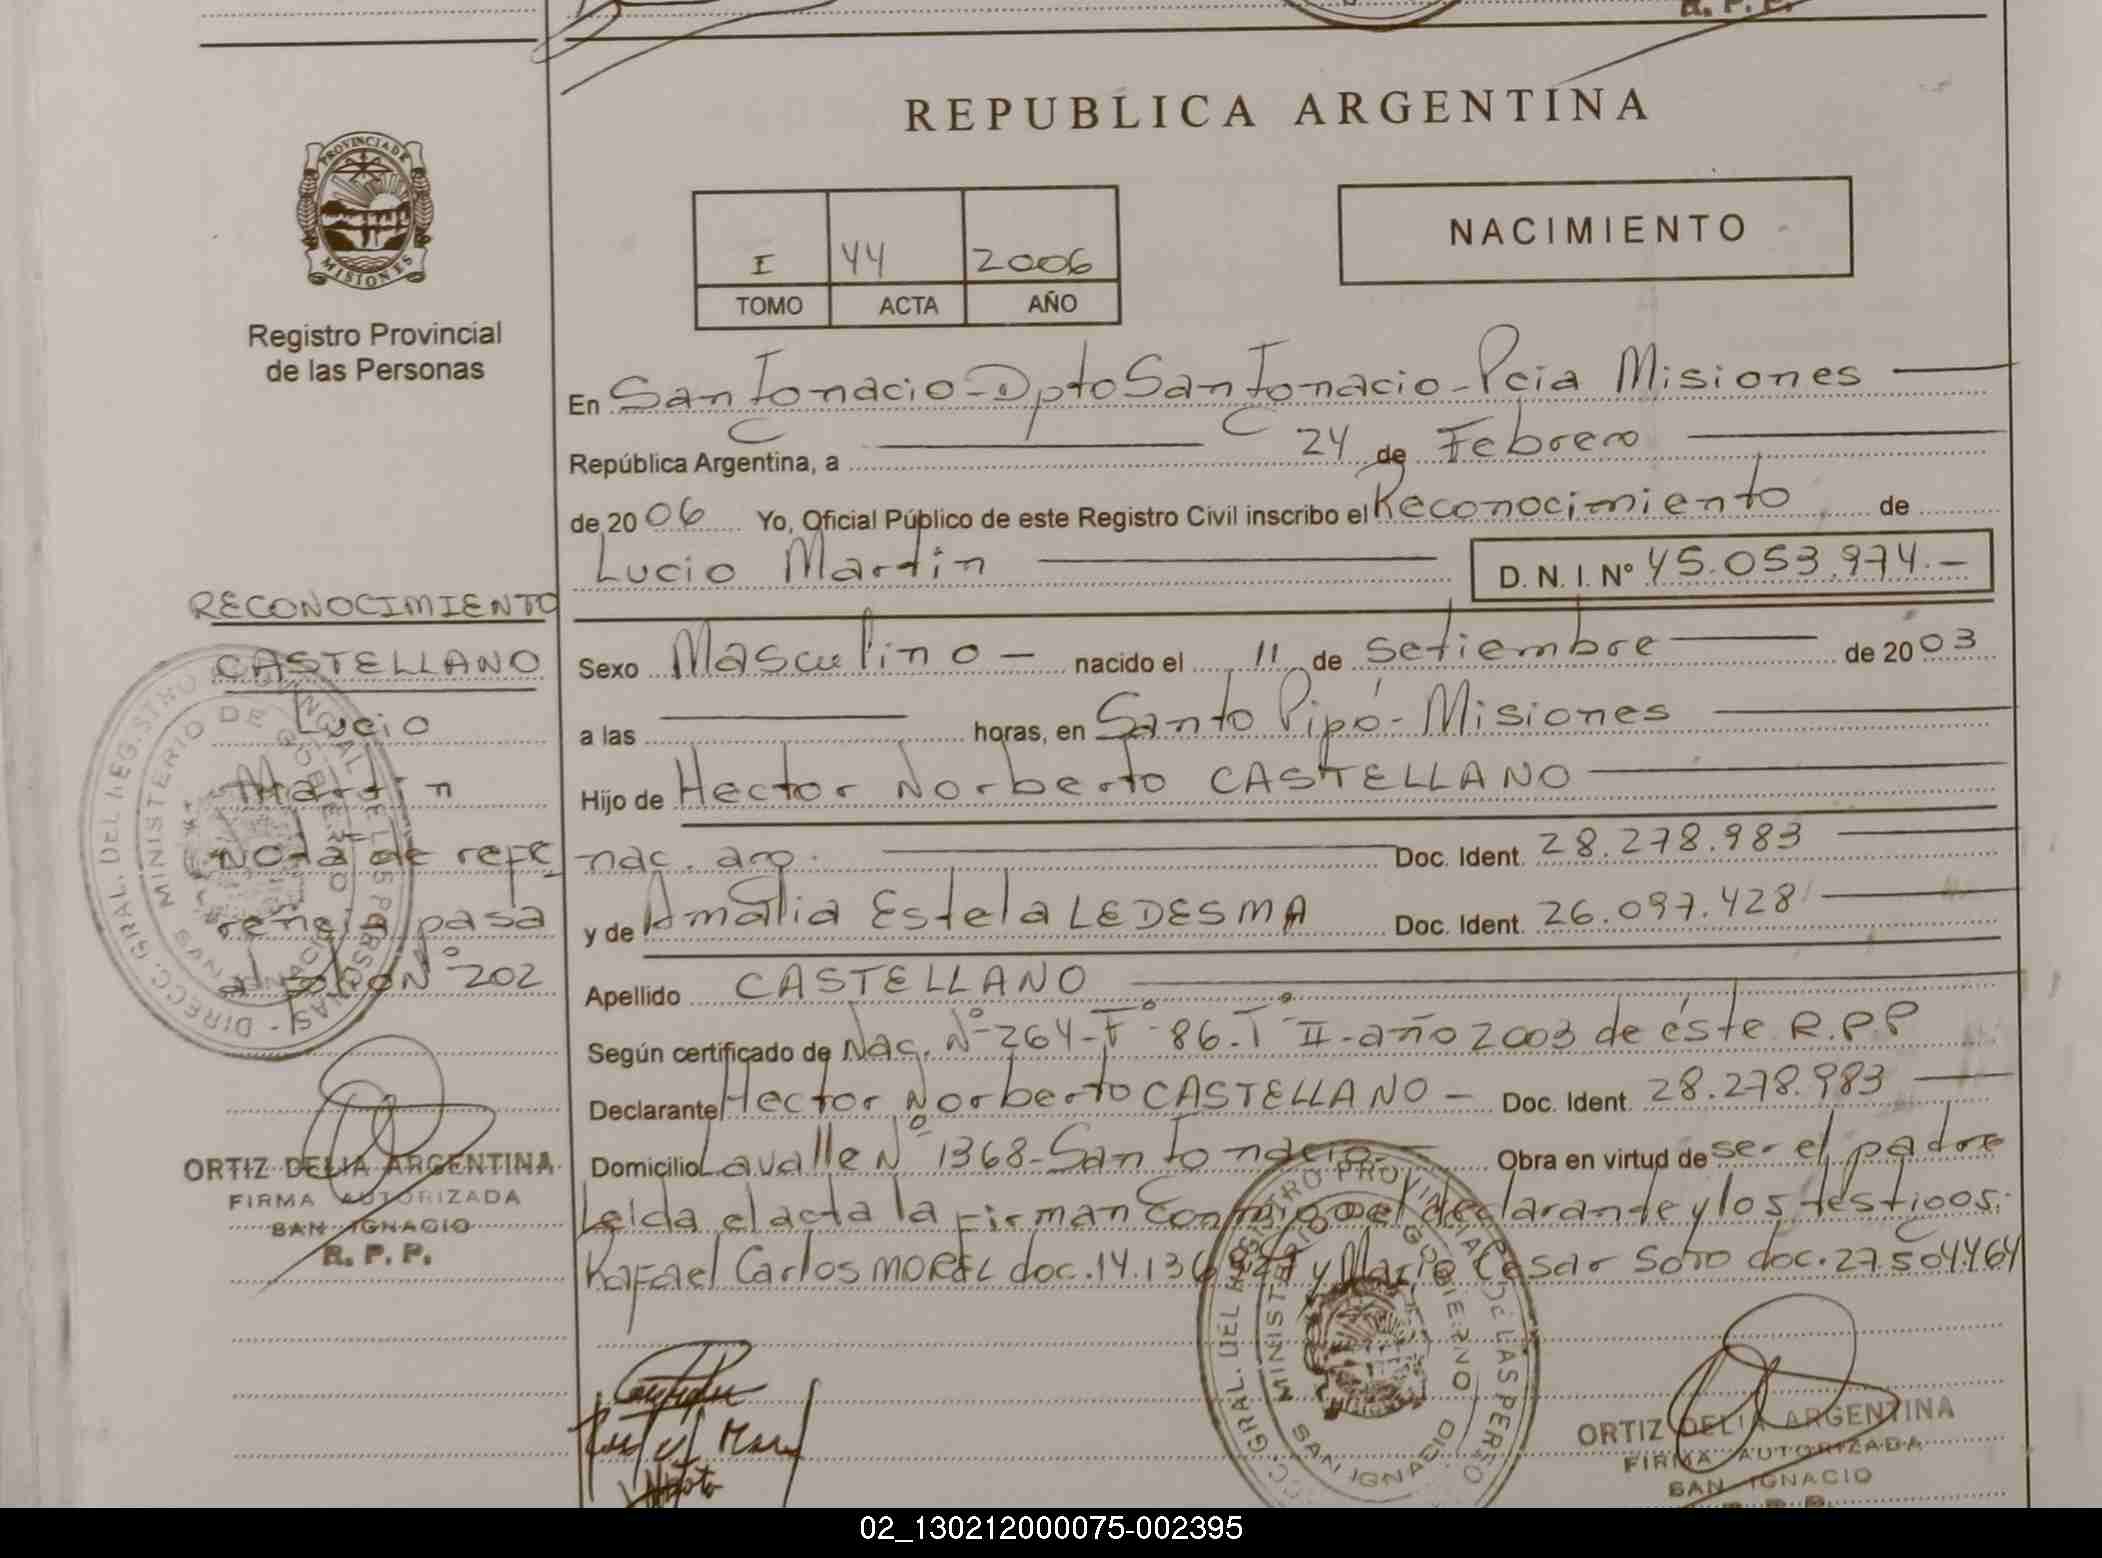 R. P. P.
REPUBLICA ARGENTINA
PROVINCIA DE
MISIONES
Registro Provincial
de las Personas
I 44 2006
TOMO ACTA AÑO
NACIMIENTO
En San Ignacio - Dpto San Ignacio - Pcia Misiones
República Argentina, a 24 de Febrero
de 2006 Yo, Oficial Público de este Registro Civil inscribo el Reconocimiento de
Lucio Martin D. N. I. Nº 45.053.974.-
Sexo Masculino - nacido el 11 de Setiembre de 2003
a las horas, en Santo Pipó - Misiones
Hijo de Hector Norberto CASTELLANO
nac. arg. Doc. Ident. 28.278.983
y de Amalia Estela LEDESMA Doc. Ident. 26.097.428
Apellido CASTELLANO
Según certificado de Nac. Nº 264 - Fº 86 - Tº II - año 2003 de éste R.P.P
Declarante Hector Norberto CASTELLANO - Doc. Ident. 28.278.983
Domicilio Lavalle Nº 1368 - San Ignacio - Obra en virtud de ser el padre
Leida el acta la firman conmigo el declarante y los testigos:
Rafael Carlos MOREL doc. 14.136 y Mario Cesar Soto doc. 27.504.464
RECONOCIMIENTO
CASTELLANO
Lucio
Martin
Nota de refe
rencia pasa
al folio Nº 202
DIRECC. GRAL. DEL REGISTRO PROVINCIAL DE LAS PERSONAS
MINISTERIO DE GOBIERNO
ORTIZ DELIA ARGENTINA
FIRMA AUTORIZADA
SAN IGNACIO
R. P. P.
DIRECC. GRAL. DEL REGISTRO PROVINCIAL DE LAS PERSONAS
MINISTERIO DE GOBIERNO
SAN IGNACIO
ORTIZ DELIA ARGENTINA
FIRMA AUTORIZADA
SAN IGNACIO
02_130212000075-002395